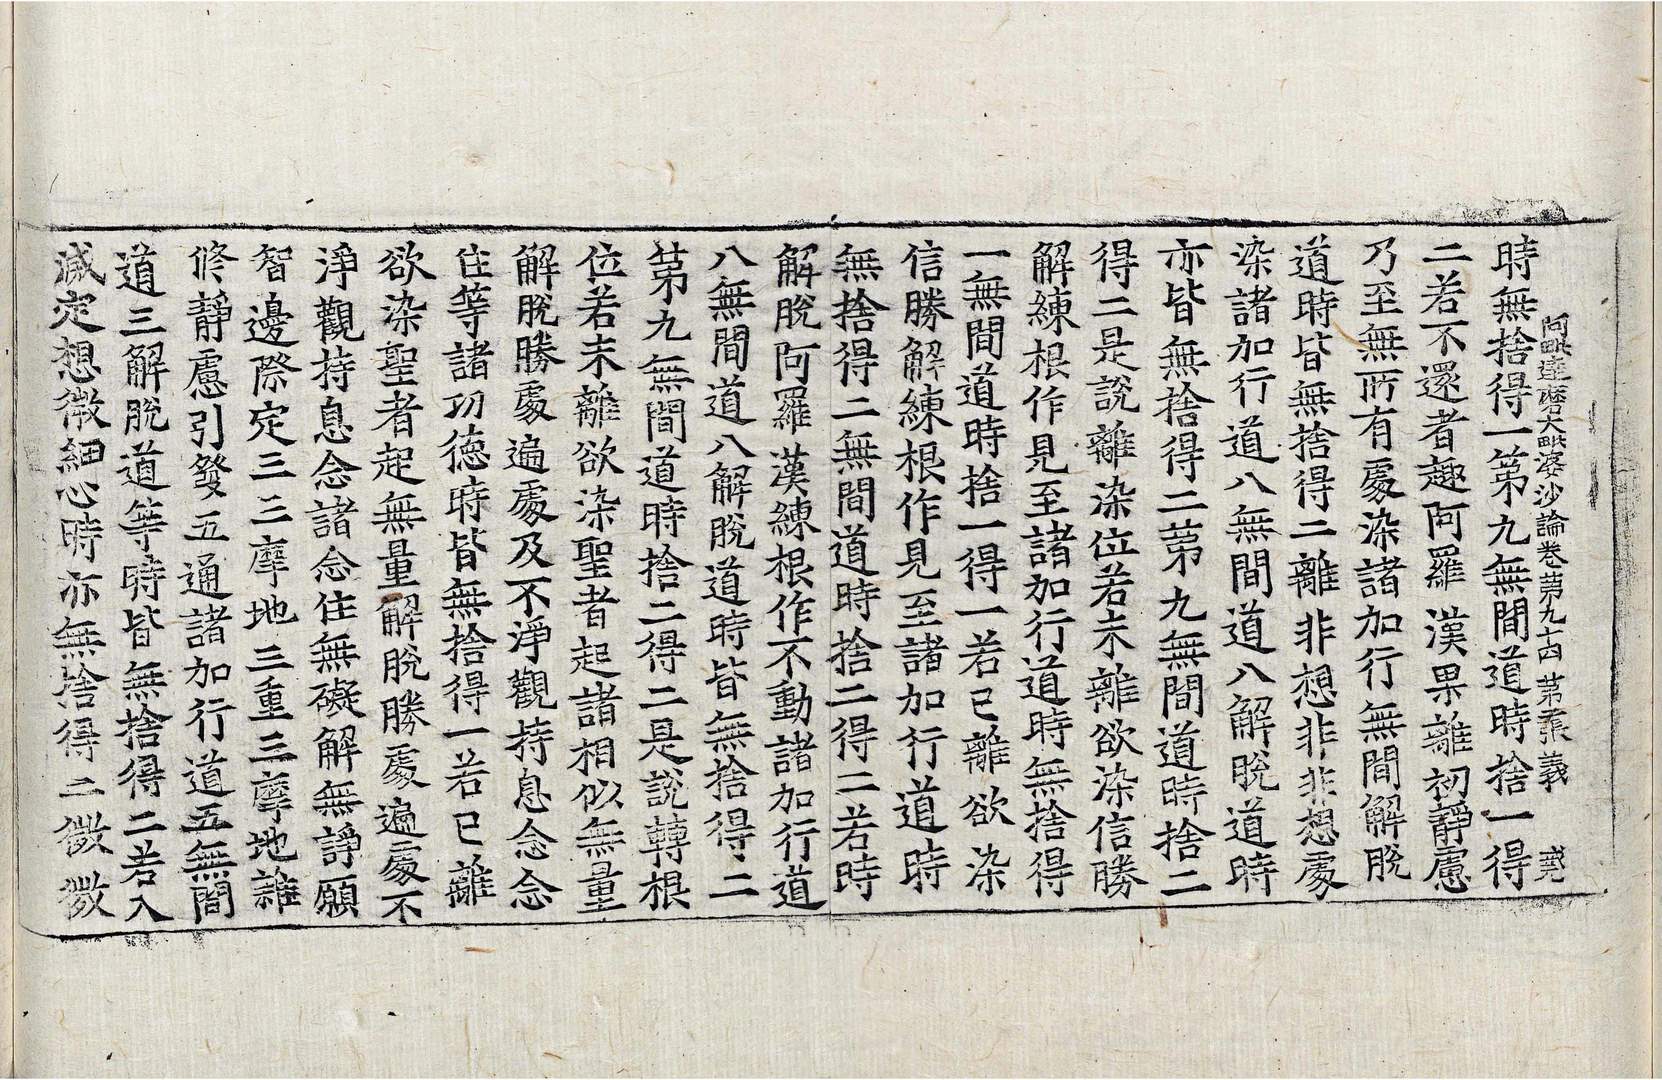 阿毗達磨大毗婆沙論卷第九十四 第五張 義
時無捨得一第九無間道時捨一得
二若不還者趣阿羅漢果離初靜慮
乃至無所有處染諸加行無間解脫
道時皆無捨得二離非想非非想處
染諸加行道八無間道八解脫道時
亦皆無捨得二第九無間道時捨二
得二是說離染位若未離欲染信勝
解練根作見至諸加行道時無捨得
一無間道時捨一得一若已離欲染
信勝解練根作見至諸加行道時
無捨得二無間道時捨二得二若時
解脫阿羅漢練根作不動諸加行道
八無間道八解脫道時皆無捨得二
第九無間道時捨二得二是說轉根
位若未離欲染聖者起諸相似無量
解脫勝處遍處及不淨觀持息念念
住等諸功德時皆無捨得一若已離
欲染聖者起無量解脫勝處遍處不
淨觀持息念諸念住無礙解無諍願
智邊際定三三摩地三重三摩地雜
修靜慮引發五通諸加行道五無間
道三解脫道等時皆無捨得二若入
滅定想微細心時亦無捨得二微微